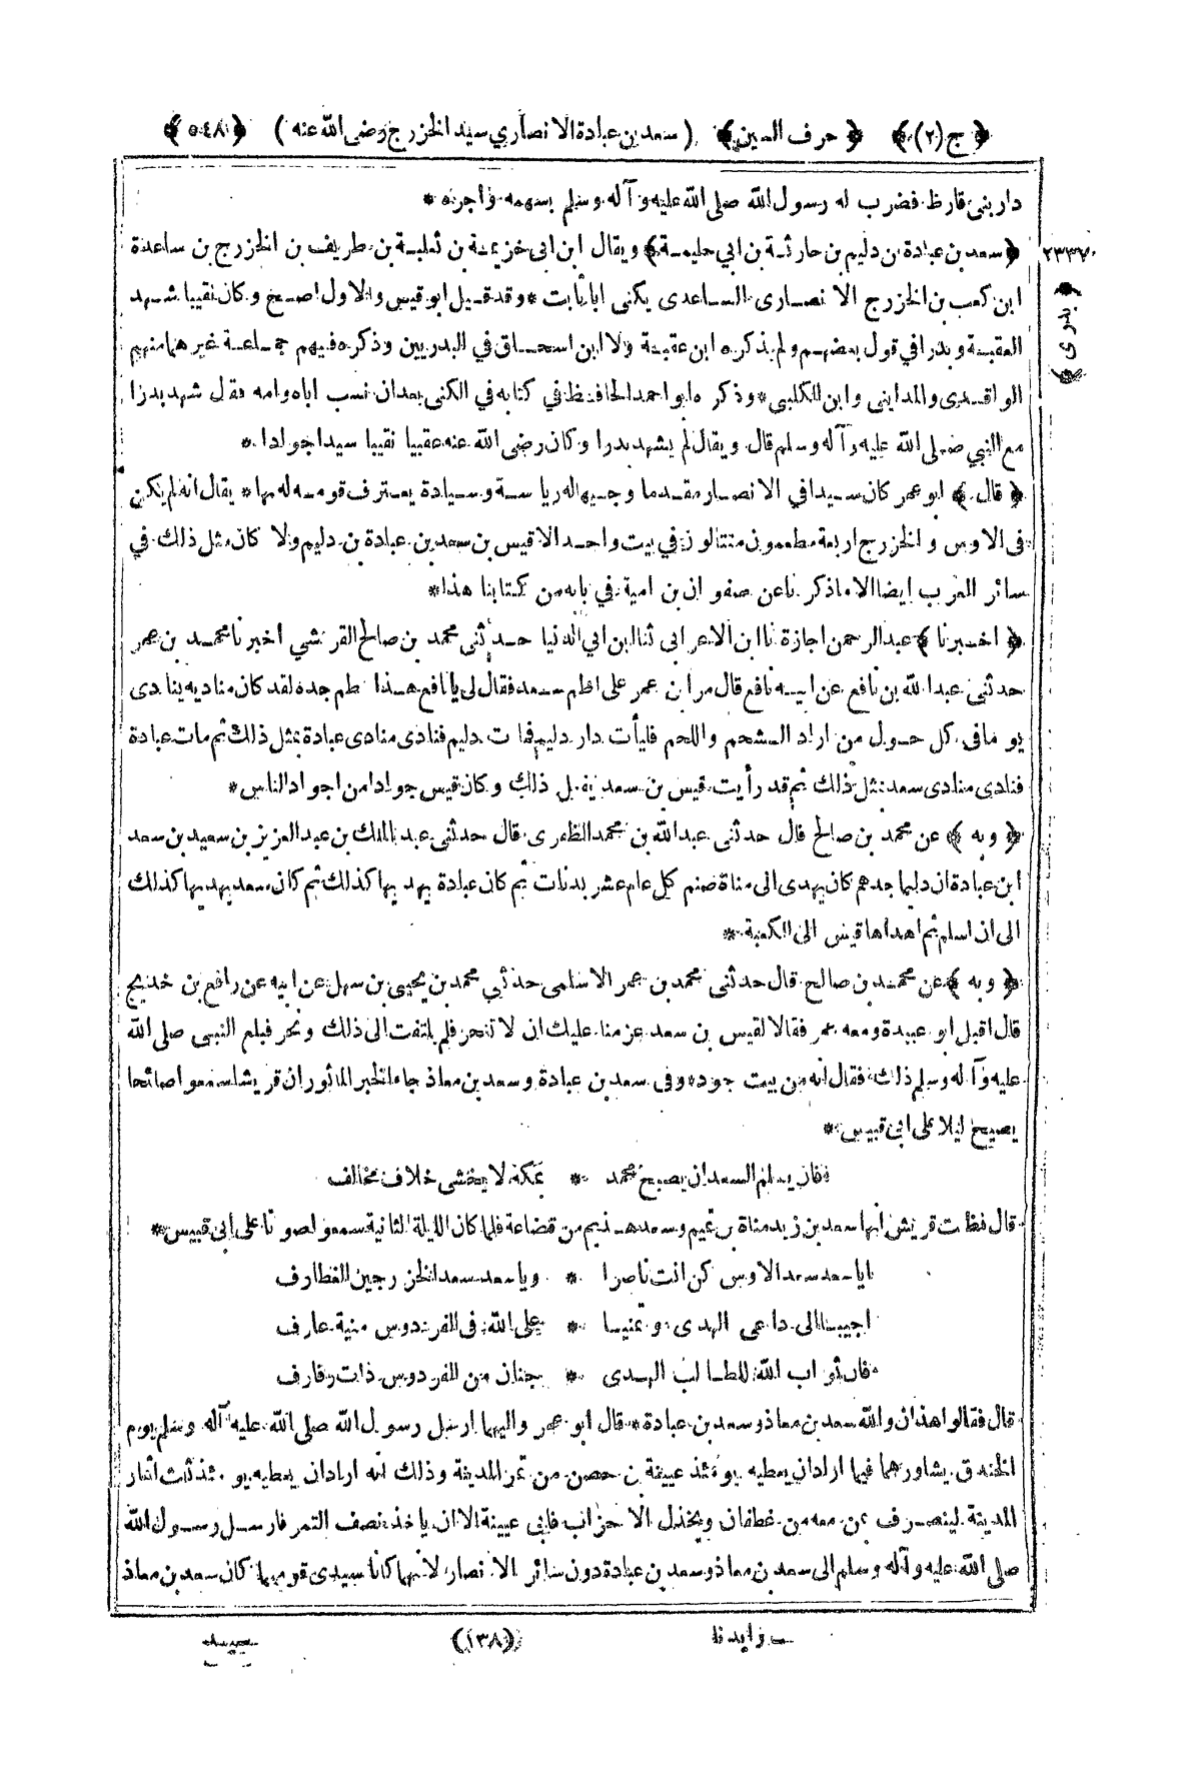 ﴿ ج (٢) ﴾ ﴿ حرف السين ﴾ ( سعد بن عبادة الانصاري سيد الخزرج رضى الله عنه ) ﴿ ٥٤٨ ﴾
دار بنى قارظ فضرب له رسول الله صلى الله عليه وآله وسلم بسهمه واجره *
٢٣٣٧
﴿ بدرى ﴾
﴿ سعد بن عبادة بن دليم بن حارثة بن ابي حليمة ﴾ ويقال ابن ابى خزيمة بن ثعلبة بن طريف بن الخزرج بن ساعدة
ابن كعب بن الخزرج الانصارى الساعدى يكنى اباثابت * وقد قيل ابو قيس والاول اصح وكان نقيبا شهد
العقبة وبدرا في قول بعضهم ولم يذكره ابن عقبة ولا ابن اسحاق في البدريين وذكره فيهم جماعة غيرهما منهم
الواقدى والمدايني وابن الكلبي * وذكره ابو احمد الحافظ في كتابه في الكنى بعد ان نسب اباه وامه فقال شهد بدرا
مع النبي صلى الله عليه وآله وسلم قال ويقال لم يشهد بدرا وكان رضى الله عنه عقبيا نقيبا سيدا جوادا *
﴿ قال ﴾ ابو عمر كان سيدا في الانصار مقدما وجيها له رياسة وسيادة يعترف قومه له بها * يقال انه لم يكن
فى الاوس والخزرج اربعة مطعمون متتالون في بيت واحد الا قيس بن سعد بن عبادة بن دليم ولا كان مثل ذلك في
سائر العرب ايضا الا ماذكرنا عن صفوان بن امية في بابه من كتابنا هذا *
﴿ اخبرنا ﴾ عبدالرحمن اجازة نا ابن الاعرابى ثنا ابن ابي الدنيا حدثنى محمد بن صالح القرشي اخبرنا محمد بن عمر
حدثنى عبدالله بن نافع عن ابيه نافع قال مر ابن عمر على اطم سعد فقال لى يا نافع هذا اطم جده لقد كان مناديه ينادى
يوما في كل حول من اراد الشحم واللحم فليأت دار دليم فمات دليم فنادى منادى عبادة بمثل ذلك ثم مات عبادة
فنادى منادى سعد بمثل ذلك ثم قد رأيت قيس بن سعد يفعل ذلك وكان قيس جوادا من اجواد الناس *
﴿ وبه ﴾ عن محمد بن صالح قال حدثنى عبدالله بن محمد الظفرى قال حدثنى عبد الملك بن عبدالعزيز بن سعيد بن سعد
ابن عبادة ان دليما جدهم كان يهدى الى مناة صنم كل عام عشر بدنات ثم كان عبادة يهديها كذلك ثم كان سعد يهديها كذلك
الى ان اسلم ثم اهداها قيس الى الكعبة *
﴿ وبه ﴾ عن محمد بن صالح قال حدثنى محمد بن عمر الاسلمى حدثني محمد بن يحيى بن سهل عن ابيه عن رافع بن خديج
قال اقبل ابو عبيدة ومعه عمر فقالا لقيس بن سعد عزمنا عليك ان لا تنحر فلم يلتفت الى ذلك ونحر فبلغ النبى صلى الله
عليه وآله وسلم ذلك فقال انه من بيت جود * وفى سعد بن عبادة وسعد بن معاذ جاء الخبر الماثور ان قريشا سمعوا صائحا
يصيح ليلا على ابى قبيس *
فان يسلم السعدان يصبح محمد * بمكة لا يخشى خلاف مخالف
قال فظنت قريش انها سعد بن زيد مناة بن تميم وسعد هذيم من قضاعة فلما كان الليلة الثانية سمعوا صوتا على ابى قبيس *
ايا سعد سعد الاوس كن انت ناصرا * ويا سعد سعد الخزرجين الغطارف
اجيبا الى داعى الهدى وتمنيا * على الله فى الفردوس منية عارف
فان ثواب الله للطالب الهدى * جنان من الفردوس ذات رفارف
قال فقالوا هذان والله سعد بن معاذ وسعد بن عبادة * قال ابو عمر واليهما ارسل رسول الله صلى الله عليه وآله وسلم يوم
الخندق يشاورهما فيما اراد ان يعطيه يومئذ عيينة بن حصن من تمر المدينة وذلك انه اراد ان يعطيه يومئذ ثلث اثمار
المدينة لينصرف بمن معه من غطفان ويخذل الاحزاب فابى عيينة الا ان ياخذ نصف التمر فارسل رسول الله
صلى الله عليه وآله وسلم الى سعد بن معاذ وسعد بن عبادة دون سائر الانصار لانهما كانا سيدى قومهما كان سعد بن معاذ
(١٣٨)